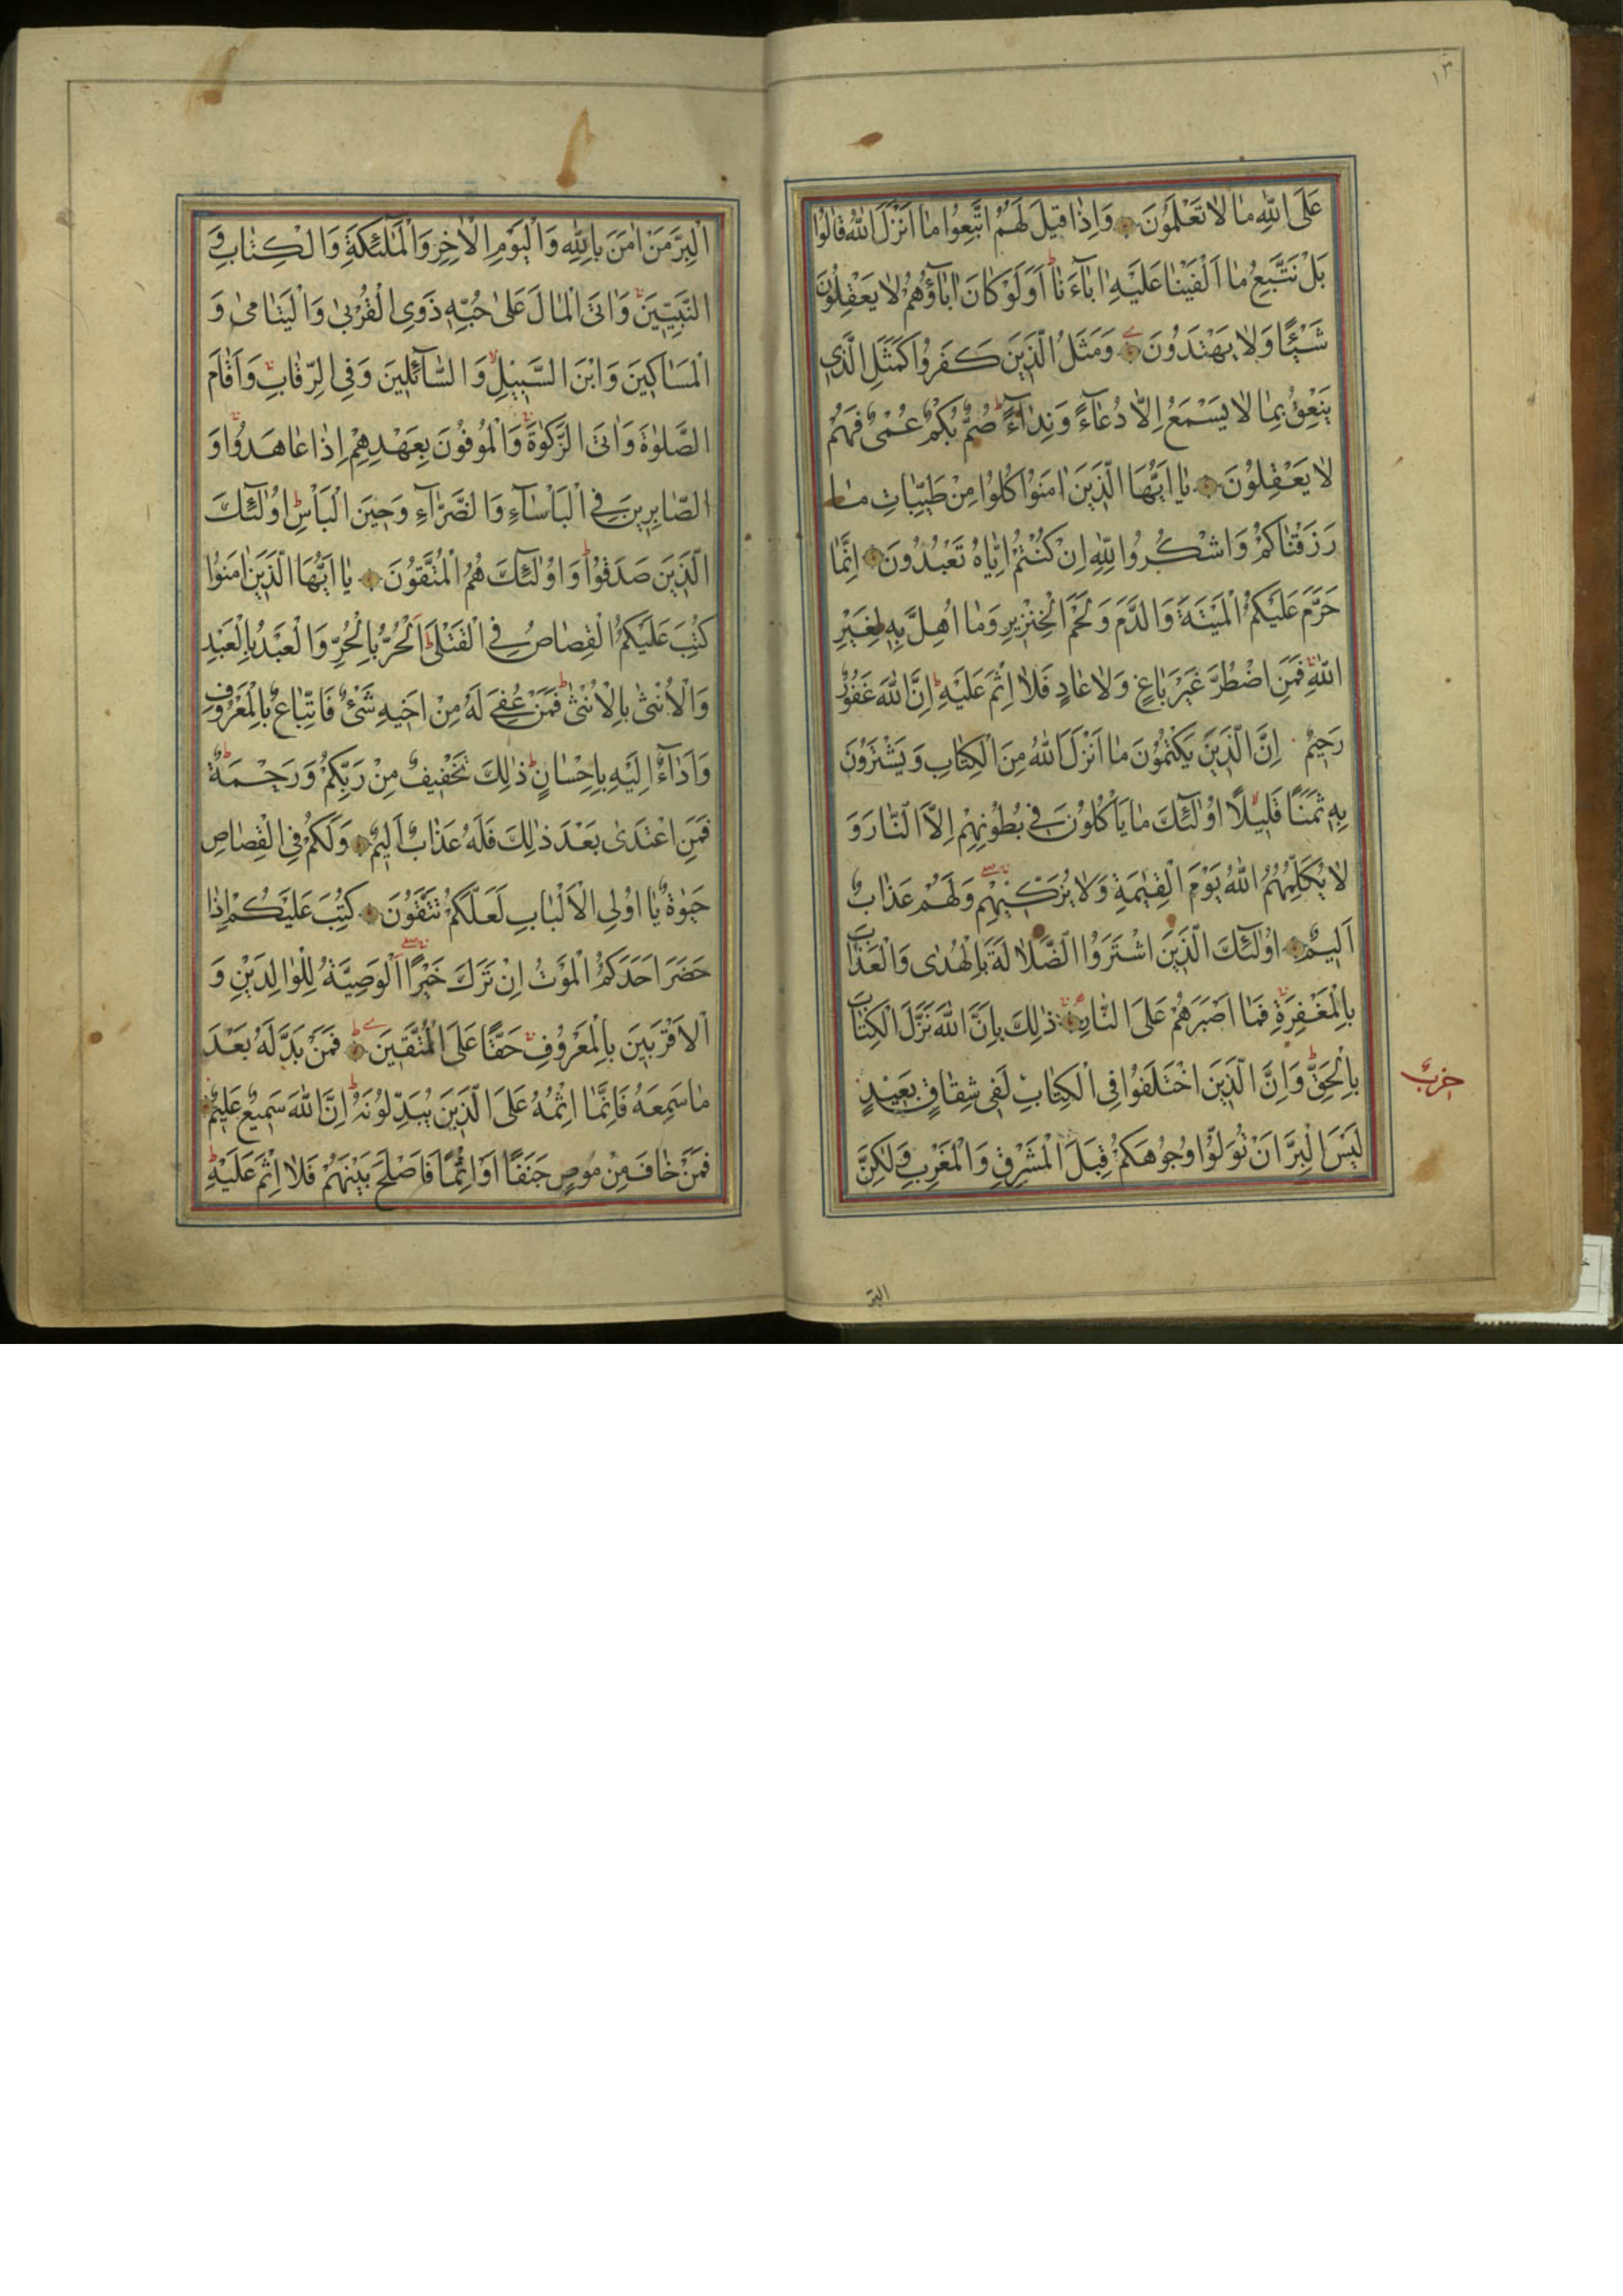 ١٣
عَلَى اللهِ مٰا لاٰ تَعْلَمُونَ وَاِذٰا قيلَ لَهُمُ اتَّبِعُوا مٰا اَنْزَلَ اللهُ قٰالُوا
بَلْ نَتَّبِعُ مٰا اَلْفَيْنٰا عَلَيْهِ اٰبٰآءَنٰا ط اَوَلَوْ كٰانَ اٰبٰآؤُهُمْ لاٰ يَعْقِلُونَ
شَيْئًا وَلاٰ يَهْتَدُونَ وَمَثَلُ الَّذينَ كَفَرُوا كَمَثَلِ الَّذي
يَنْعِقُ بِمٰا لاٰ يَسْمَعُ اِلاّٰ دُعٰآءً وَنِدٰآءً ط صُمٌّ بُكْمٌ عُمْىٌ فَهُمْ
لاٰ يَعْقِلُونَ يٰا اَيُّهَا الَّذينَ اٰمَنُوا كُلُوا مِنْ طَيِّبٰاتِ مٰا
رَزَقْنٰاكُمْ وَاشْكُرُوا لِلّٰهِ اِنْ كُنْتُمْ اِيّٰاهُ تَعْبُدُونَ اِنَّمٰا
حَرَّمَ عَلَيْكُمُ الْمَيْتَةَ وَالدَّمَ وَلَحْمَ الْخِنْزيرِ وَمٰا اُهِلَّ بِهِ لِغَيْرِ
اللهِ فَمَنِ اضْطُرَّ غَيْرَ بٰاغٍ وَلاٰ عٰادٍ فَلاٰ اِثْمَ عَلَيْهِ ط اِنَّ اللهَ غَفُورٌ
رَحيمٌ اِنَّ الَّذينَ يَكْتُمُونَ مٰا اَنْزَلَ اللهُ مِنَ الْكِتٰابِ وَيَشْتَرُونَ
بِهِ ثَمَنًا قَليلاً اُولٰئِكَ مٰا يَأْكُلُونَ في بُطُونِهِمْ اِلاَّ النّٰارَ وَ
لاٰ يُكَلِّمُهُمُ اللهُ يَوْمَ الْقِيٰمَةِ وَلاٰ يُزَكّيهِمْ وَلَهُمْ عَذٰابٌ
اَليمٌ اُولٰئِكَ الَّذينَ اشْتَرَوُا الضَّلاٰلَةَ بِالْهُدٰى وَالْعَذٰابَ
بِالْمَغْفِرَةِ فَمٰا اَصْبَرَهُمْ عَلَى النّٰارِ ذٰلِكَ بِاَنَّ اللهَ نَزَّلَ الْكِتٰابَ
بِالْحَقِّ ط وَاِنَّ الَّذينَ اخْتَلَفُوا فِي الْكِتٰابِ لَفي شِقٰاقٍ بَعيدٍ
حزب
لَيْسَ الْبِرَّ اَنْ تُوَلُّوا وُجُوهَكُمْ قِبَلَ الْمَشْرِقِ وَالْمَغْرِبِ وَلٰكِنَّ
البرّ
الْبِرَّ مَنْ اٰمَنَ بِاللهِ وَالْيَوْمِ الْاٰخِرِ وَالْمَلٰئِكَةِ وَالْكِتٰابِ وَ
النَّبِيّينَ وَاٰتَى الْمٰالَ عَلىٰ حُبِّهِ ذَوِي الْقُرْبىٰ وَالْيَتٰامىٰ وَ
الْمَسٰاكينَ وَابْنَ السَّبيلِ وَالسّٰآئِلينَ وَفِي الرِّقٰابِ وَاَقٰامَ
الصَّلوٰةَ وَاٰتَى الزَّكوٰةَ وَالْمُوفُونَ بِعَهْدِهِمْ اِذٰا عٰاهَدُوا وَ
الصّٰابِرينَ فِي الْبَأْسٰآءِ وَالضَّرّٰآءِ وَحينَ الْبَأْسِ ط اُولٰئِكَ
الَّذينَ صَدَقُوا ط وَاُولٰئِكَ هُمُ الْمُتَّقُونَ يٰا اَيُّهَا الَّذينَ اٰمَنُوا
كُتِبَ عَلَيْكُمُ الْقِصٰاصُ فِي الْقَتْلىٰ ط اَلْحُرُّ بِالْحُرِّ وَالْعَبْدُ بِالْعَبْدِ
وَالْاُنْثىٰ بِالْاُنْثىٰ ط فَمَنْ عُفِيَ لَهُ مِنْ اَخيهِ شَىْءٌ فَاتِّبٰاعٌ بِالْمَعْرُوفِ
وَاَدٰآءٌ اِلَيْهِ بِاِحْسٰانٍ ط ذٰلِكَ تَخْفيفٌ مِنْ رَبِّكُمْ وَرَحْمَةٌ ط
فَمَنِ اعْتَدٰى بَعْدَ ذٰلِكَ فَلَهُ عَذٰابٌ اَليمٌ وَلَكُمْ فِي الْقِصٰاصِ
حَيوٰةٌ يٰا اُولِي الْاَلْبٰابِ لَعَلَّكُمْ تَتَّقُونَ كُتِبَ عَلَيْكُمْ اِذٰا
حَضَرَ اَحَدَكُمُ الْمَوْتُ اِنْ تَرَكَ خَيْرًا اَلْوَصِيَّةُ لِلْوٰالِدَيْنِ وَ
الْاَقْرَبينَ بِالْمَعْرُوفِ حَقًّا عَلَى الْمُتَّقينَ ط فَمَنْ بَدَّلَهُ بَعْدَ
مٰا سَمِعَهُ فَاِنَّمٰا اِثْمُهُ عَلَى الَّذينَ يُبَدِّلُونَهُ ط اِنَّ اللهَ سَميعٌ عَليمٌ
فَمَنْ خٰافَ مِنْ مُوصٍ جَنَفًا اَوْ اِثْمًا فَاَصْلَحَ بَيْنَهُمْ فَلاٰ اِثْمَ عَلَيْهِ ط